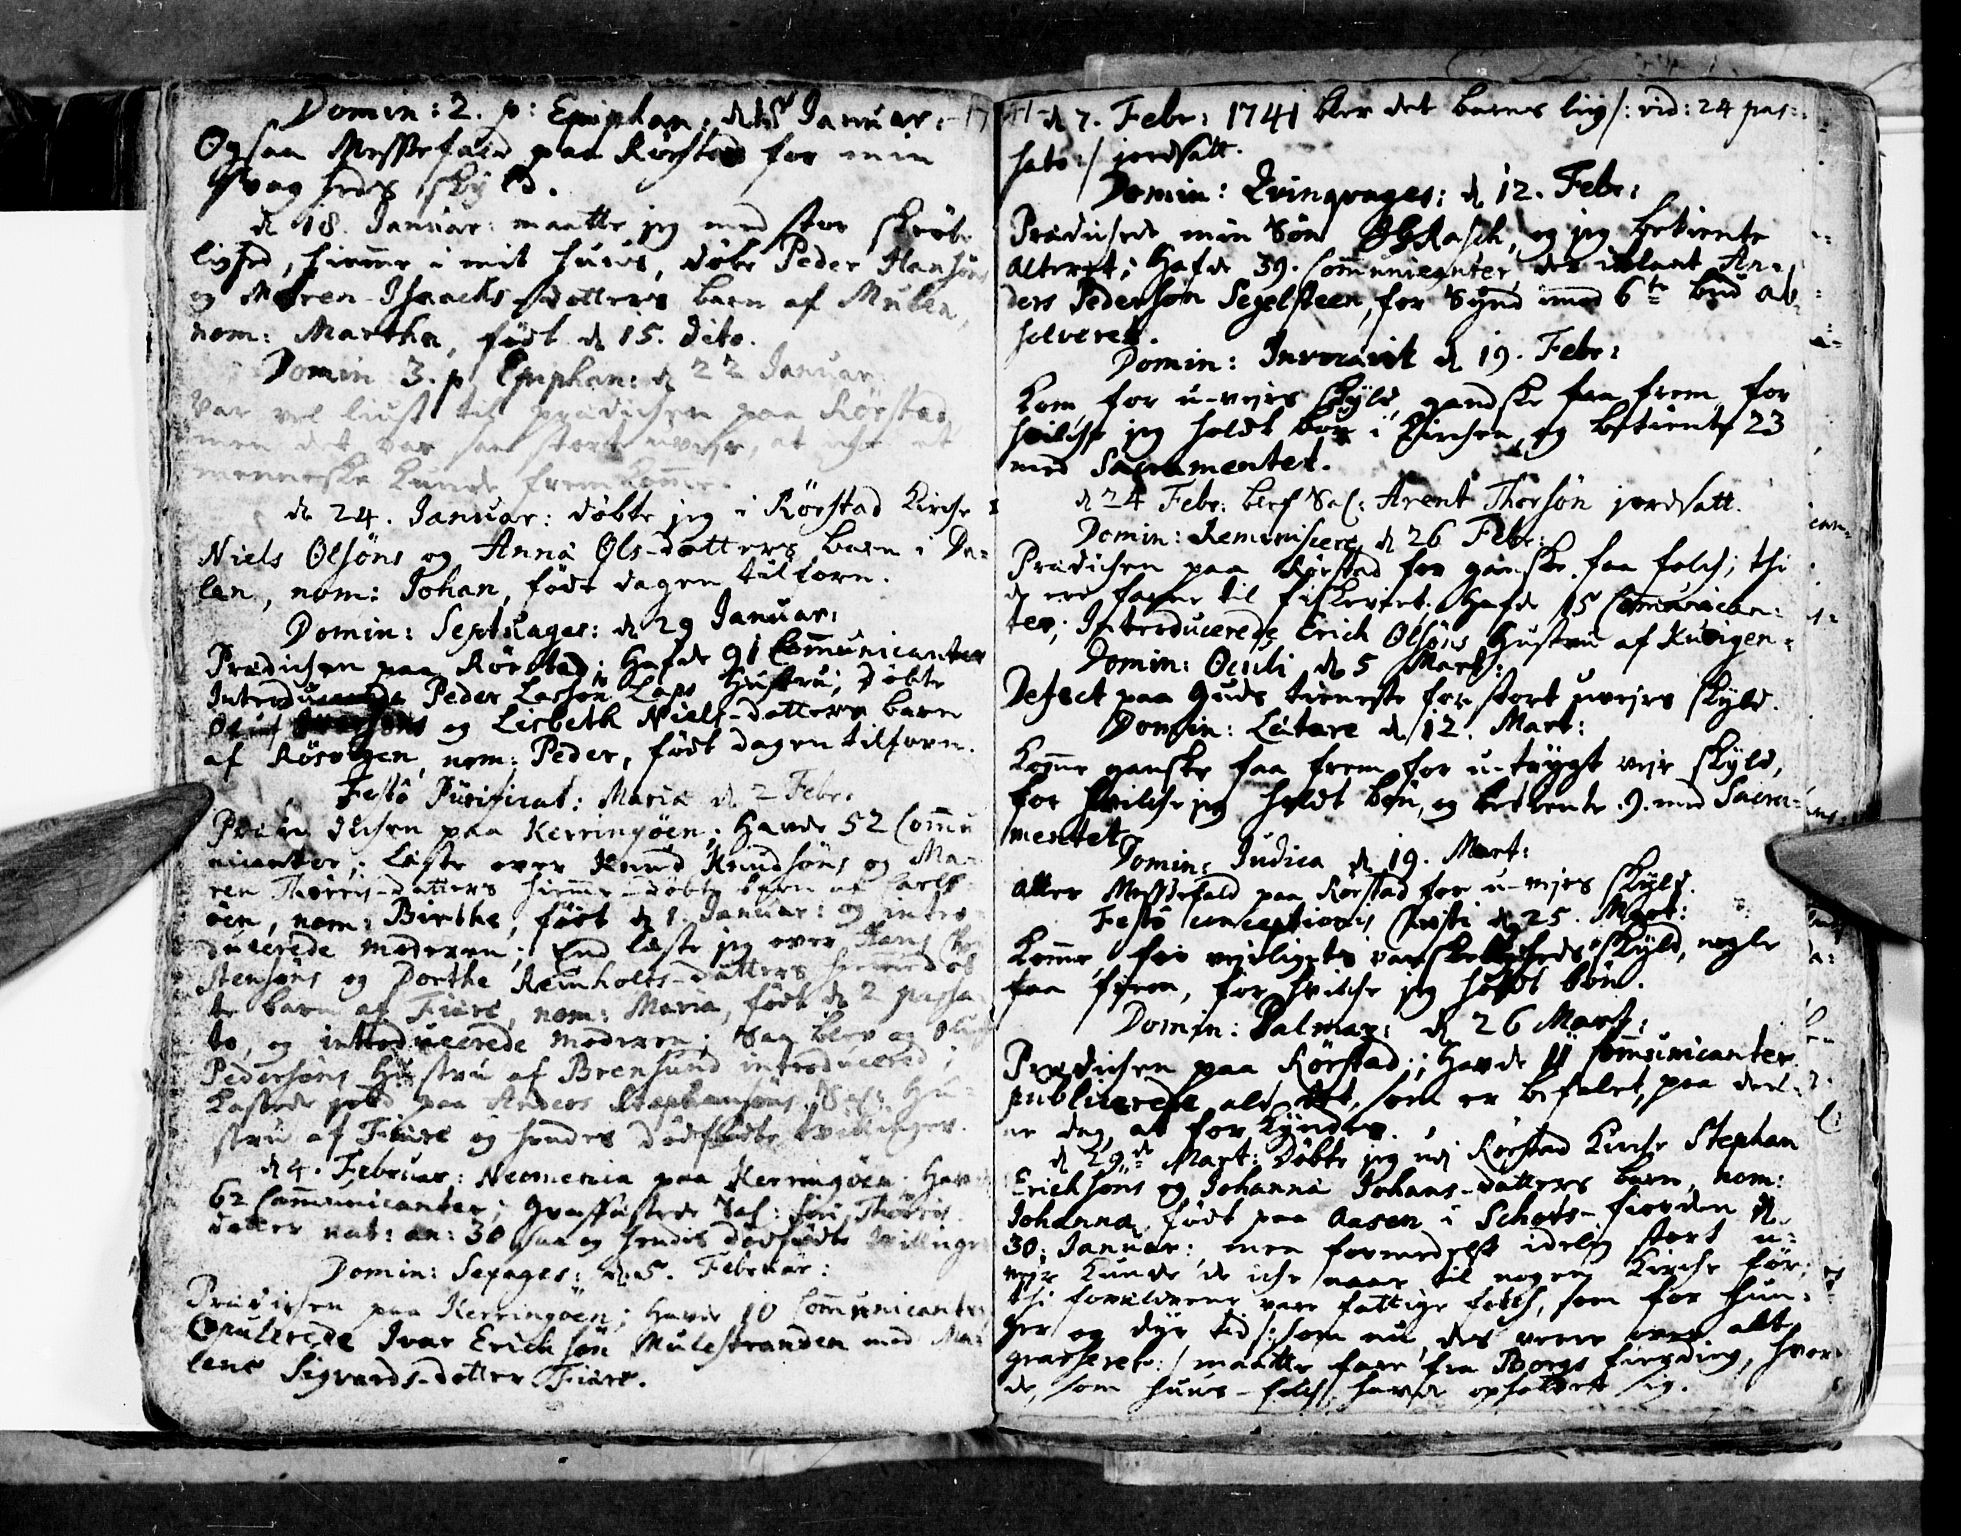 Domin: 2. p: Epiphan: d. 15 Januar: 1741
Ogsaa Messefald paa Rörstad for min
svagheds skyld.
d. 18. Januar: maatte jeg med stor skröbe-
lighed, hiemme i mit huus, döbe Peder Hansöns
og Maren Isaachs-datters barn af Mulen,
nom: Martha, födt d. 15. dito.
Domin: 3. p. Epiphan: d. 22 Januar:
Var vel liust til prædichen paa Rörstad,
men det var saa stort uvejr, at iche et
menneske kunde fremkomme.
d. 24. Januar: döbte jeg i Rörstad Kirche
Niels Olsöns og Anna Ols-datters barn i Da-
len, nom: Johan, födt dagen tilforn.
Domin: Septuages: d. 29 Januar:
Prædichen paa Rörstad; Hafde 91 Communicanter
Introducerede Peder Lassön Laps Hustru; döbte
Oluf Iversöns og Lisbeth Niels-datters barn
af Rösvigen, nom: Peder, födt dagen tilforn.
Festo Purificat: Mariæ d. 2 Febr:
Prædichen paa Kerringöen; Havde 52 Commu
nicanter; Læste over Knud Knudsöns og Ma-
ren Thorris-datters hiemme-döbte barn af Carls-
öen, nom: Birthe, födt d. 1. Januar: og intro-
ducerede moderen; End læste jeg over Hans
stensöns og Dorthe Reinholts-datters hiemmedöb
te barn af Fiære, nom: Maria, födt d. 2 passa-
to, og introducerede moderen; Saa blev og Oluf
Pedersöns Hustru af Brensund introducered;
Kastede jord paa Anders Stephansöns Sal: Hu-
stru af Fiære og hendes dödfödte tvillinger.
d. 4. Februar: Neomenia paa Kerringöen. Havde
62 Communicanter; Graffästede Sal: Thorris-
datter nat: an: 30 saa og hendis dödfödte tvillinger
Domin: Sexages: d. 5. Februar:
Prædichen paa Kerringöen; Havde 10 Communicanter
Copulerede Ivar Erichsön Mulestranden med Ma-
lene Sigvards-datter Fiære.
d. 7. Febr: 1741 blev det barns lig /: vid: 24 pas-
sato :/ jordsatt.
Domin: Qvinqvages: d. 12. Febr:
Prædichede min Sön Rasch, og jeg betiente
Alteret; Hafde 39. Communicanter, der iblant An-
ders Pedersön Segelsteen, for Synd imod 6te bud ab-
solveret.
Domin: Invocavit d. 19. Febr:
Kom, for u-vejrs skyld, gandske faa frem, for
hvilche jeg holdt bön i Kirchen, og betiente 23
med Sacramentet.
d. 24 Febr: blef Sal: Arent Thorsön jordsatt.
Domin: Reminiscere d. 26 Febr:
Prædichen paa Rörstad for ganske faa folch; thi
de ere farne til fiskeriet. Hafde 15 Communican-
ter; Introducerede Erich Olsöns Hustru af Kvigen-
Domin: Oculi d. 5 Mart:
Defect paa Guds tieneste for stort uvejrs skyld.
Domin: Lætare d. 12. Mart:
Komme ganske faa frem for u-trygt vejr skyld,
for hvilche jeg holdt bön, og betiente .9. med Sacra-
mentet.
Domin: Judica d. 19. Mart:
Atter Messefald paa Rörstad for u-vejrs skyld.
Festo conceptionis Christi d. 25. Mart:
Komme, for vejrligets vanskeligheds skyld, nogle
faa frem, for hvilche jeg holdt bön.
Domin: Palmar: d. 26 Mart:
Prædichen paa Rörstad; Havde 11 Communicanter
publicerede alt det, som er befalet, paa den-
ne dag at forkyndes.
d. 29de Mart: Döbte jeg udj Rörstad Kirche Stephan
Erichsöns og Johanna Johans-datters barn, nom:
Johanna, födt paa Aasen i Schots-fiorden d.
30. Januar: men formedelst idelig stort u-
vejr kunde de iche naae til nogen Kirche för;
thi forældrene vare fattige folch, som for hun-
ger og dyr tid /: som nu, des verre over alt
grasserer :/ maatte fare fra Borgs fierding, hvor
de, som huus-folch, havde opholdet sig.